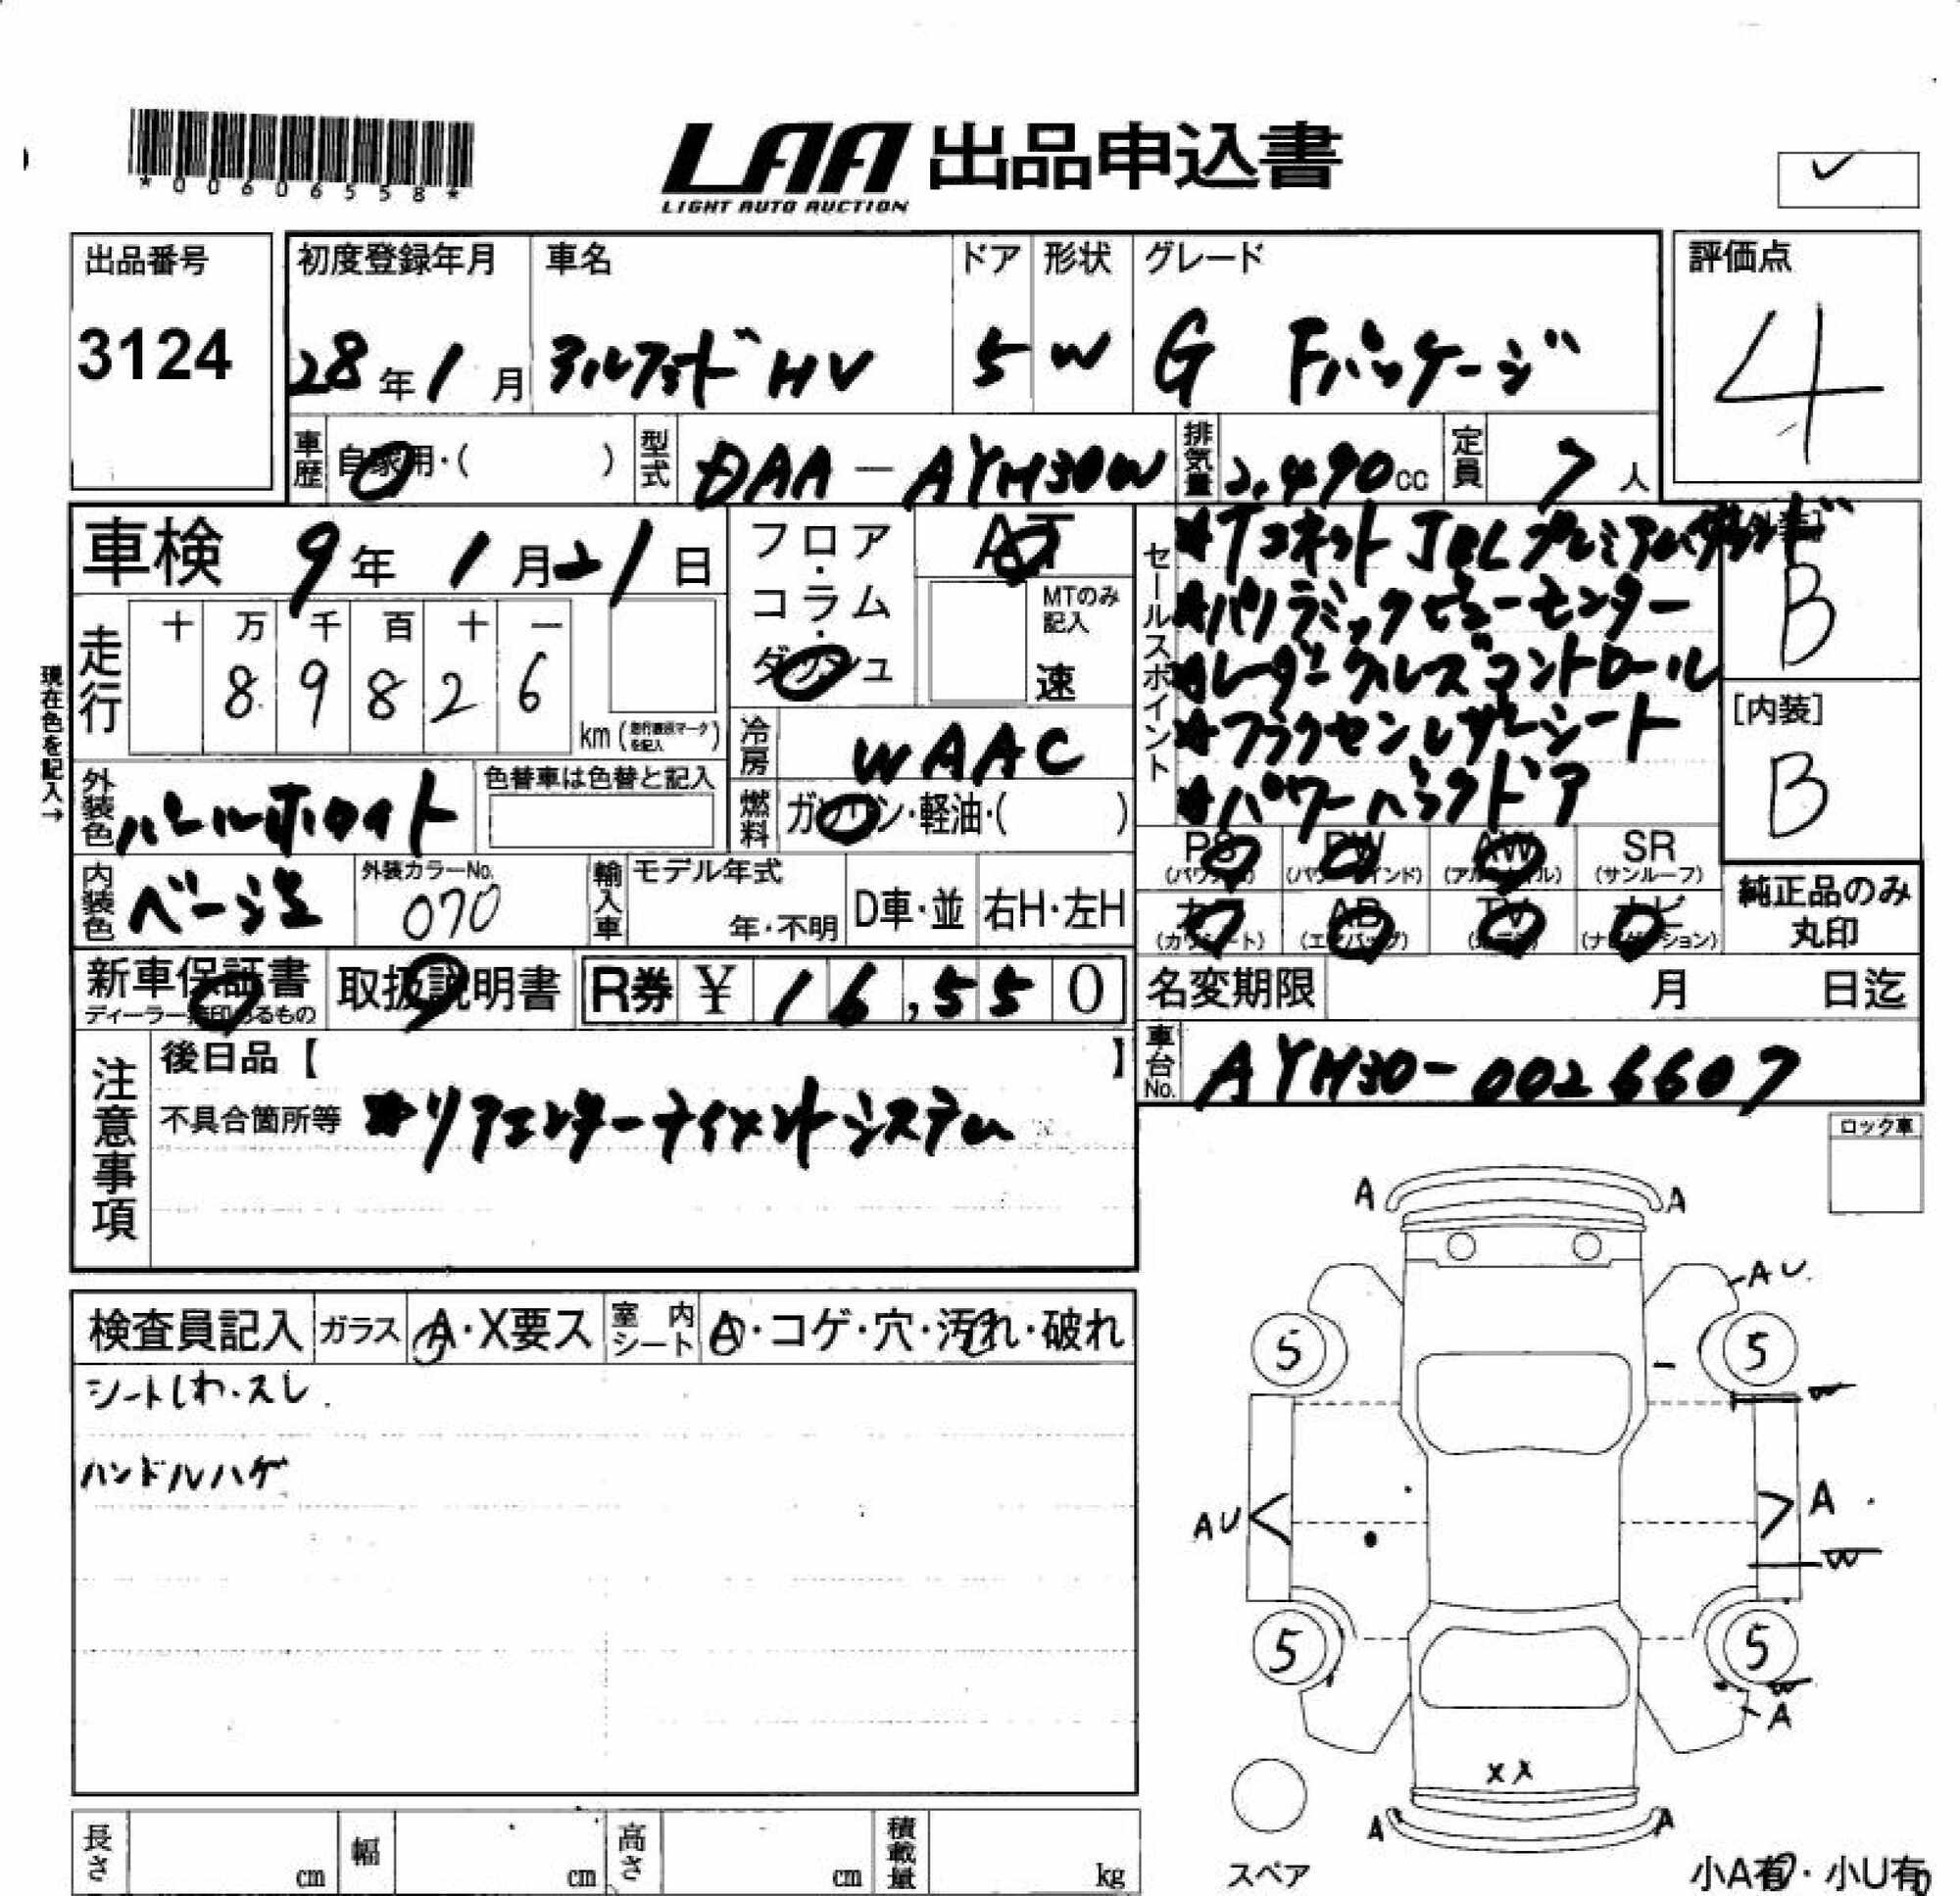 *00606558*
LAA 出品申込書
LIGHT AUTO AUCTION
出品番号
3124
初度登録年月 車名 ドア 形状 グレード
28年1月 アルファード HV 5 W G Fパッケージ
評価点
4
車歴 自家用・( )
型式 DAA-AYH30W
排気量 2.490cc
定員 7人
車検 9年1月21日
フロア・コラム・ダッシュ
AT
MTのみ記入
速
走行
十 万 千 百 十 一
8 9 8 2 6
km (走行要改マークを記入)
現在色を記入→
冷房 WAAC
外装色 パールホワイト
色替車は色替と記入
燃料 ガソリン・軽油・( )
内装色 ベージュ
外装カラーNo.
070
輸入車
モデル年式
年・不明
D車・並 右H・左H
セールスポイント
★Tコネクト JBLプレミアムサウンド
★パノラミックビューモニター
★レーダークルーズコントロール
★フラクセンレザーシート
★パワーバックドア
[外装]
B
[内装]
B
PS PW AW SR
(パワステ) (パワーウインド) (アルミホイル) (サンルーフ)
カワ AB TV ナビ
(カワシート) (エアバッグ) (テレビ) (ナビゲーション)
純正品のみ
丸印
新車保証書 取扱説明書 R券 ¥ 16,550
ディーラー捺印のあるもの
名変期限 月 日迄
車台No. AYH30-0026607
注意事項
後日品【 】
不具合箇所等 ★リアエンターテイメントシステム
ロック車
検査員記入 ガラス A・X要ス 室内シート A・コゲ・穴・汚れ・破れ
シートしわ・スレ.
ハンドルハゲ
A A
AU
5 5
W
AU A
W
5 5
W
A
XX
A A
長さ cm 幅 cm 高さ cm 積載量 kg
スペア
小A有・小U有